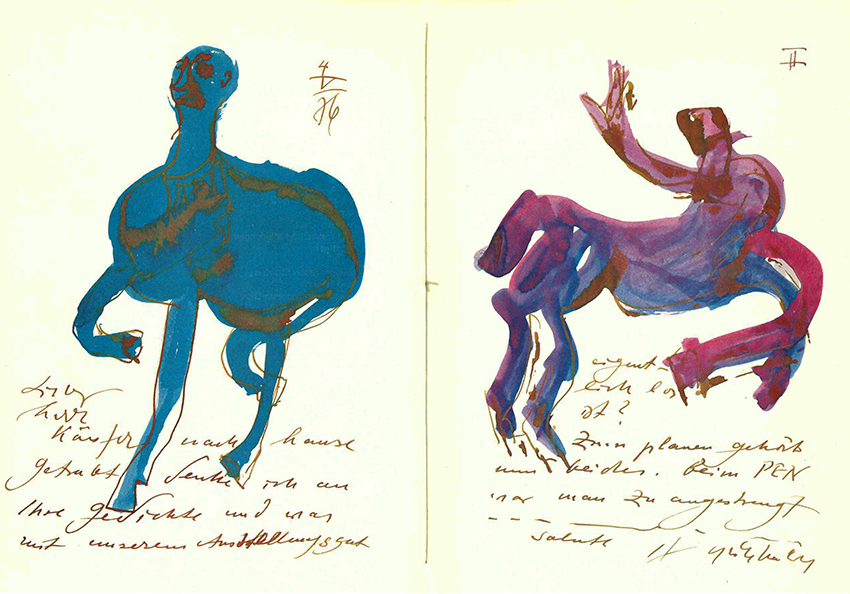 4
V
76
Lieber
herr
nach hause
getrabt denke ich an
Ihre gedichte und was
mit unserem Ausstellungsgut
II
eigent-
lich los
ist?
Zum planen gehört
nun beides. Beim PEN
war man zu angestrengt
Salute